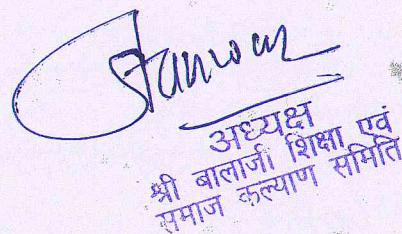 अध्यक्ष
श्री बालाजी शिक्षा एवं
समाज कल्याण समिति